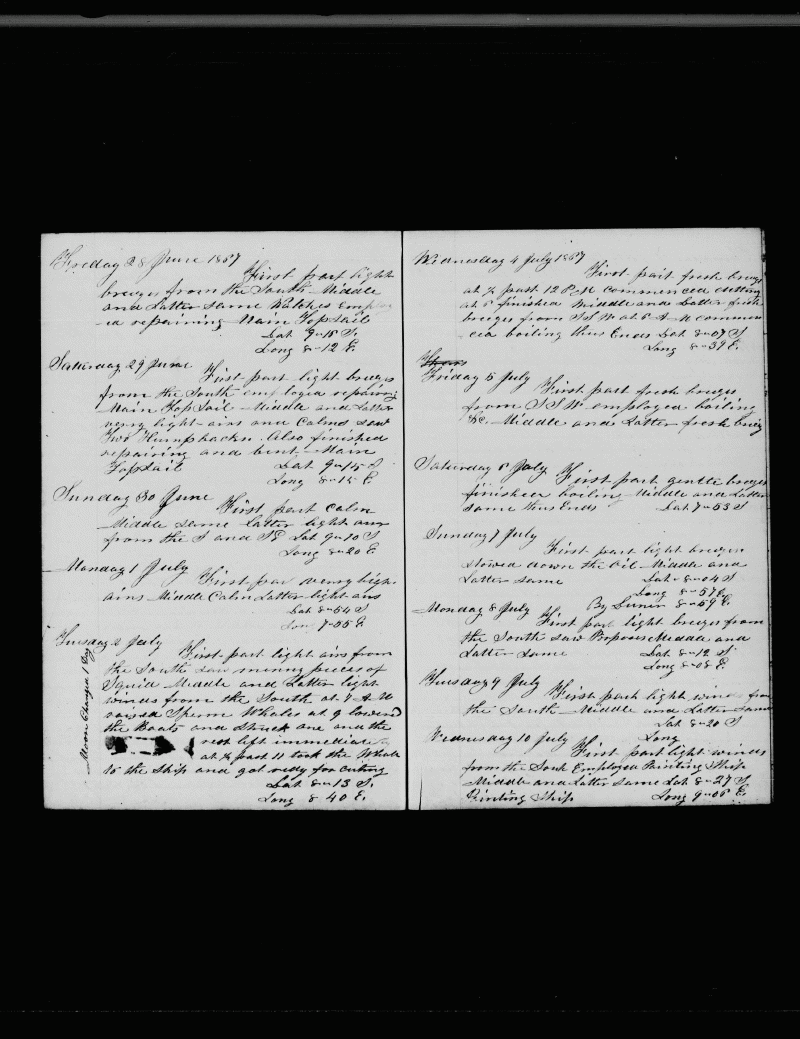 Friday 28 June 1867
First part light
breezes from the South Middle
and Latter same Watches employ
ed repairing Main TopSail
Lat 9-15 S.
Long 8-12 E.
Saturday 29 June
First part light breezes
from the South employed repairing
Main TopSail Middle and Latter
verry light airs and Calms saw
Two Humpbacks. Also finished
repairing and bent Main
TopSail Lat 9-15 S
Long 8-15 E.
Sunday 30 June
First part Calm
Middle same Latter light airs
from the S and SE Lat 9-10 S
Long 8-20 E
Monday 1 July
First par verry ligh
airs Middle Calm Latter light airs
Lat 8-54 S
Lon 7-55 E
Tuesday 2 July
First part light airs from
the South saw menny pieces of
Squid Middle and Latter light
winds from the South at 7 A M
raised Sperm Whales at 9 lowered
the Boats and Struck one and the
rest left immediate
at ½ past 11 took the Whale
to the Ship and got redy for cuting
Lat 8-13 S.
Long 8 40 E.
Moon Changed 1 Day
Wednesday 4 July 1867
First part fresh breezes
at ½ past 12 P M commenced cutting
at 6 finished Middle and Latter fresh
breezes from SSW at 6 A M commen
ced boiling thus Ends Lat 8-07 S
Long 8-39 E.
Friday 5 July
First part fresh breezes
from SSW employed boiling
&c. Middle and Latter fresh breez
Saturday 6 July
First part gentle breezes
finished boiling Middle and Latter
same thus Ends Lat 7-53 S
Sunday 7 July
First part light breezes
stowed down the Oil Middle and
Latter same Lat 8-04 S
Long 8-57 E.
By Luner 8-59 E.
Monday 8 July
First part light breezes from
the South saw Porposes Middle and
Latter same Lat 8-12 S
Long 8-08 E.
Thursday 9 July
First part light winds from
the South Middle and Latter same
Lat 8-20 S
Long
Wednesday 10 July
First part light winds
from the South Employed Painting Ship
Middle and Latter same Lat 8-27 S
Painting Ship Long 9-06 E.